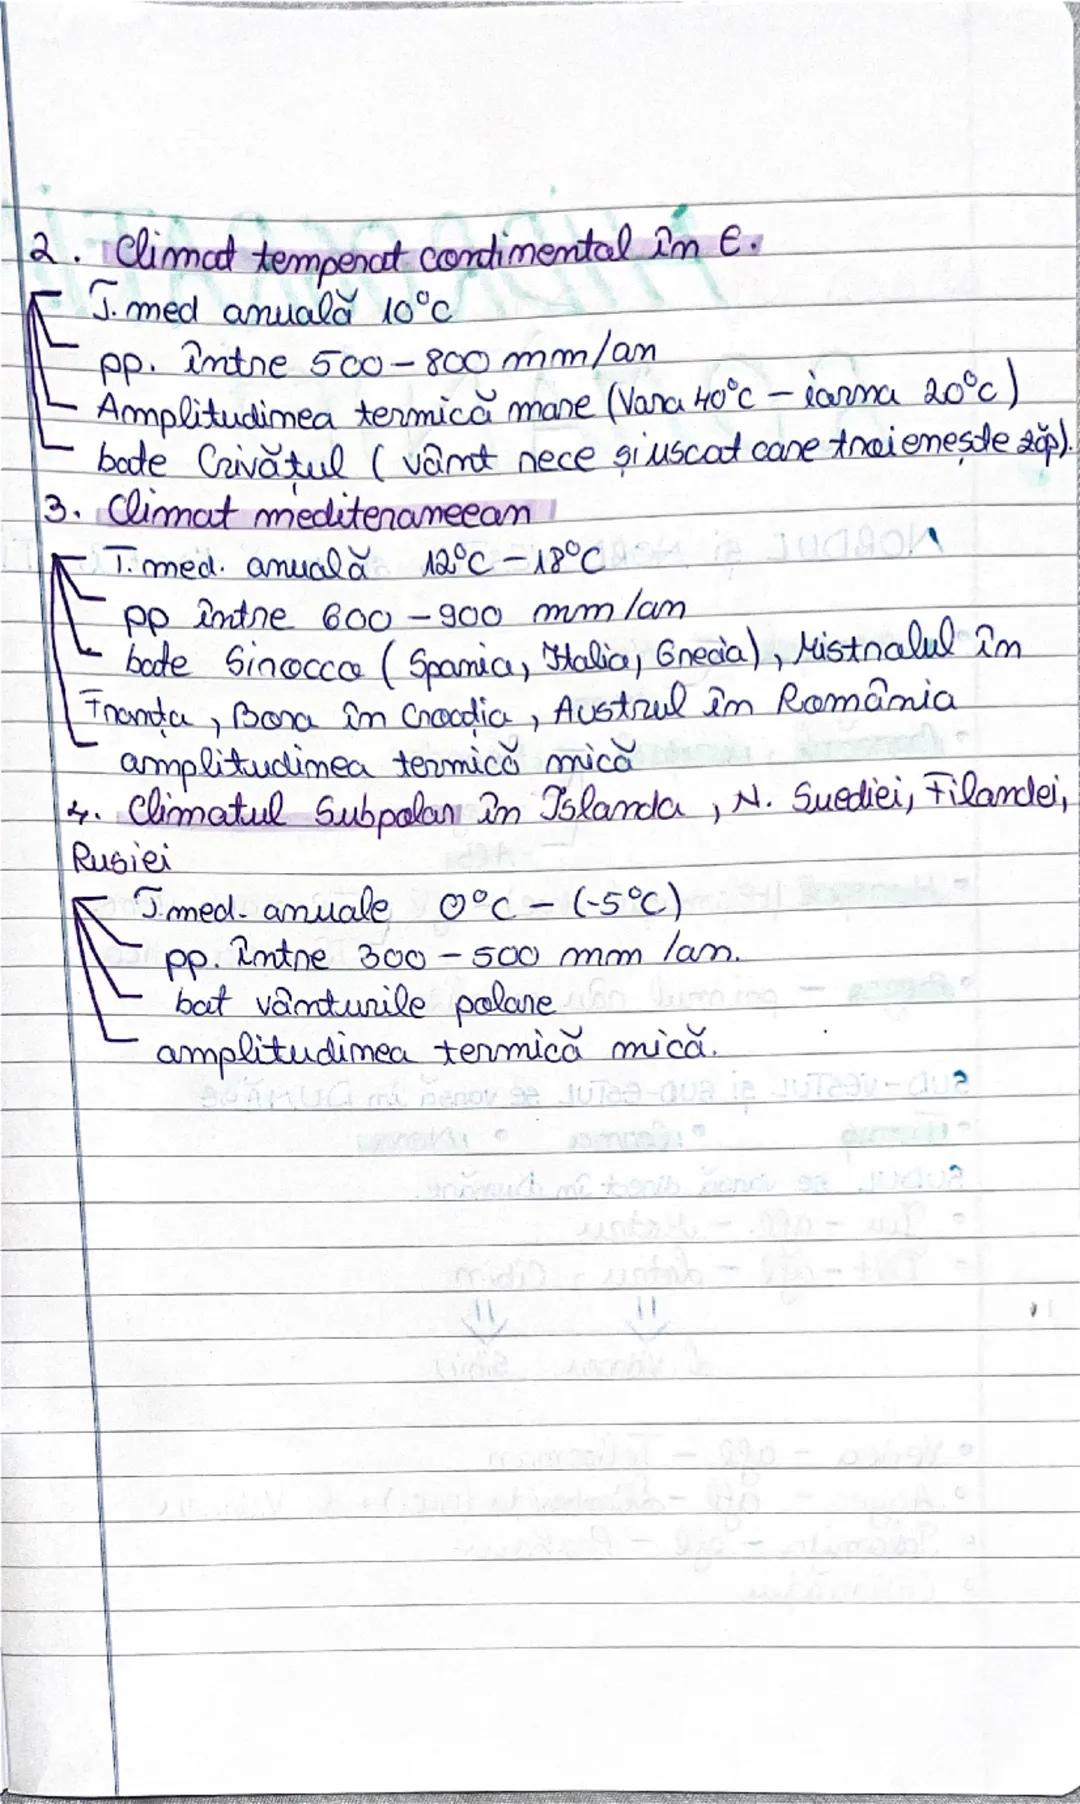 2. Climat temperat continental în E.
T. med anuală 10°C
pp. între 500 - 800 mm/an
Amplitudinea termică mare (Vara 40°C - iarna 20°C)
bate Crivățul ( vânt rece și uscat care troienește zăp).
3. Climat mediteraneean
T. med. anuală 12°C - 18°C
pp între 600 - 900 mm/an
bate Sirocco ( Spania, Italia, Grecia), Mistralul în
Franța, Bora în Croația, Austrul în România
amplitudinea termică mică
4. Climatul Subpolar în Islanda, N. Suediei, Filandei,
Rusiei
T. med. anuale 0°C - (-5°C)
pp. între 300 - 500 mm /an.
bat vânturile polare
amplitudinea termică mică.